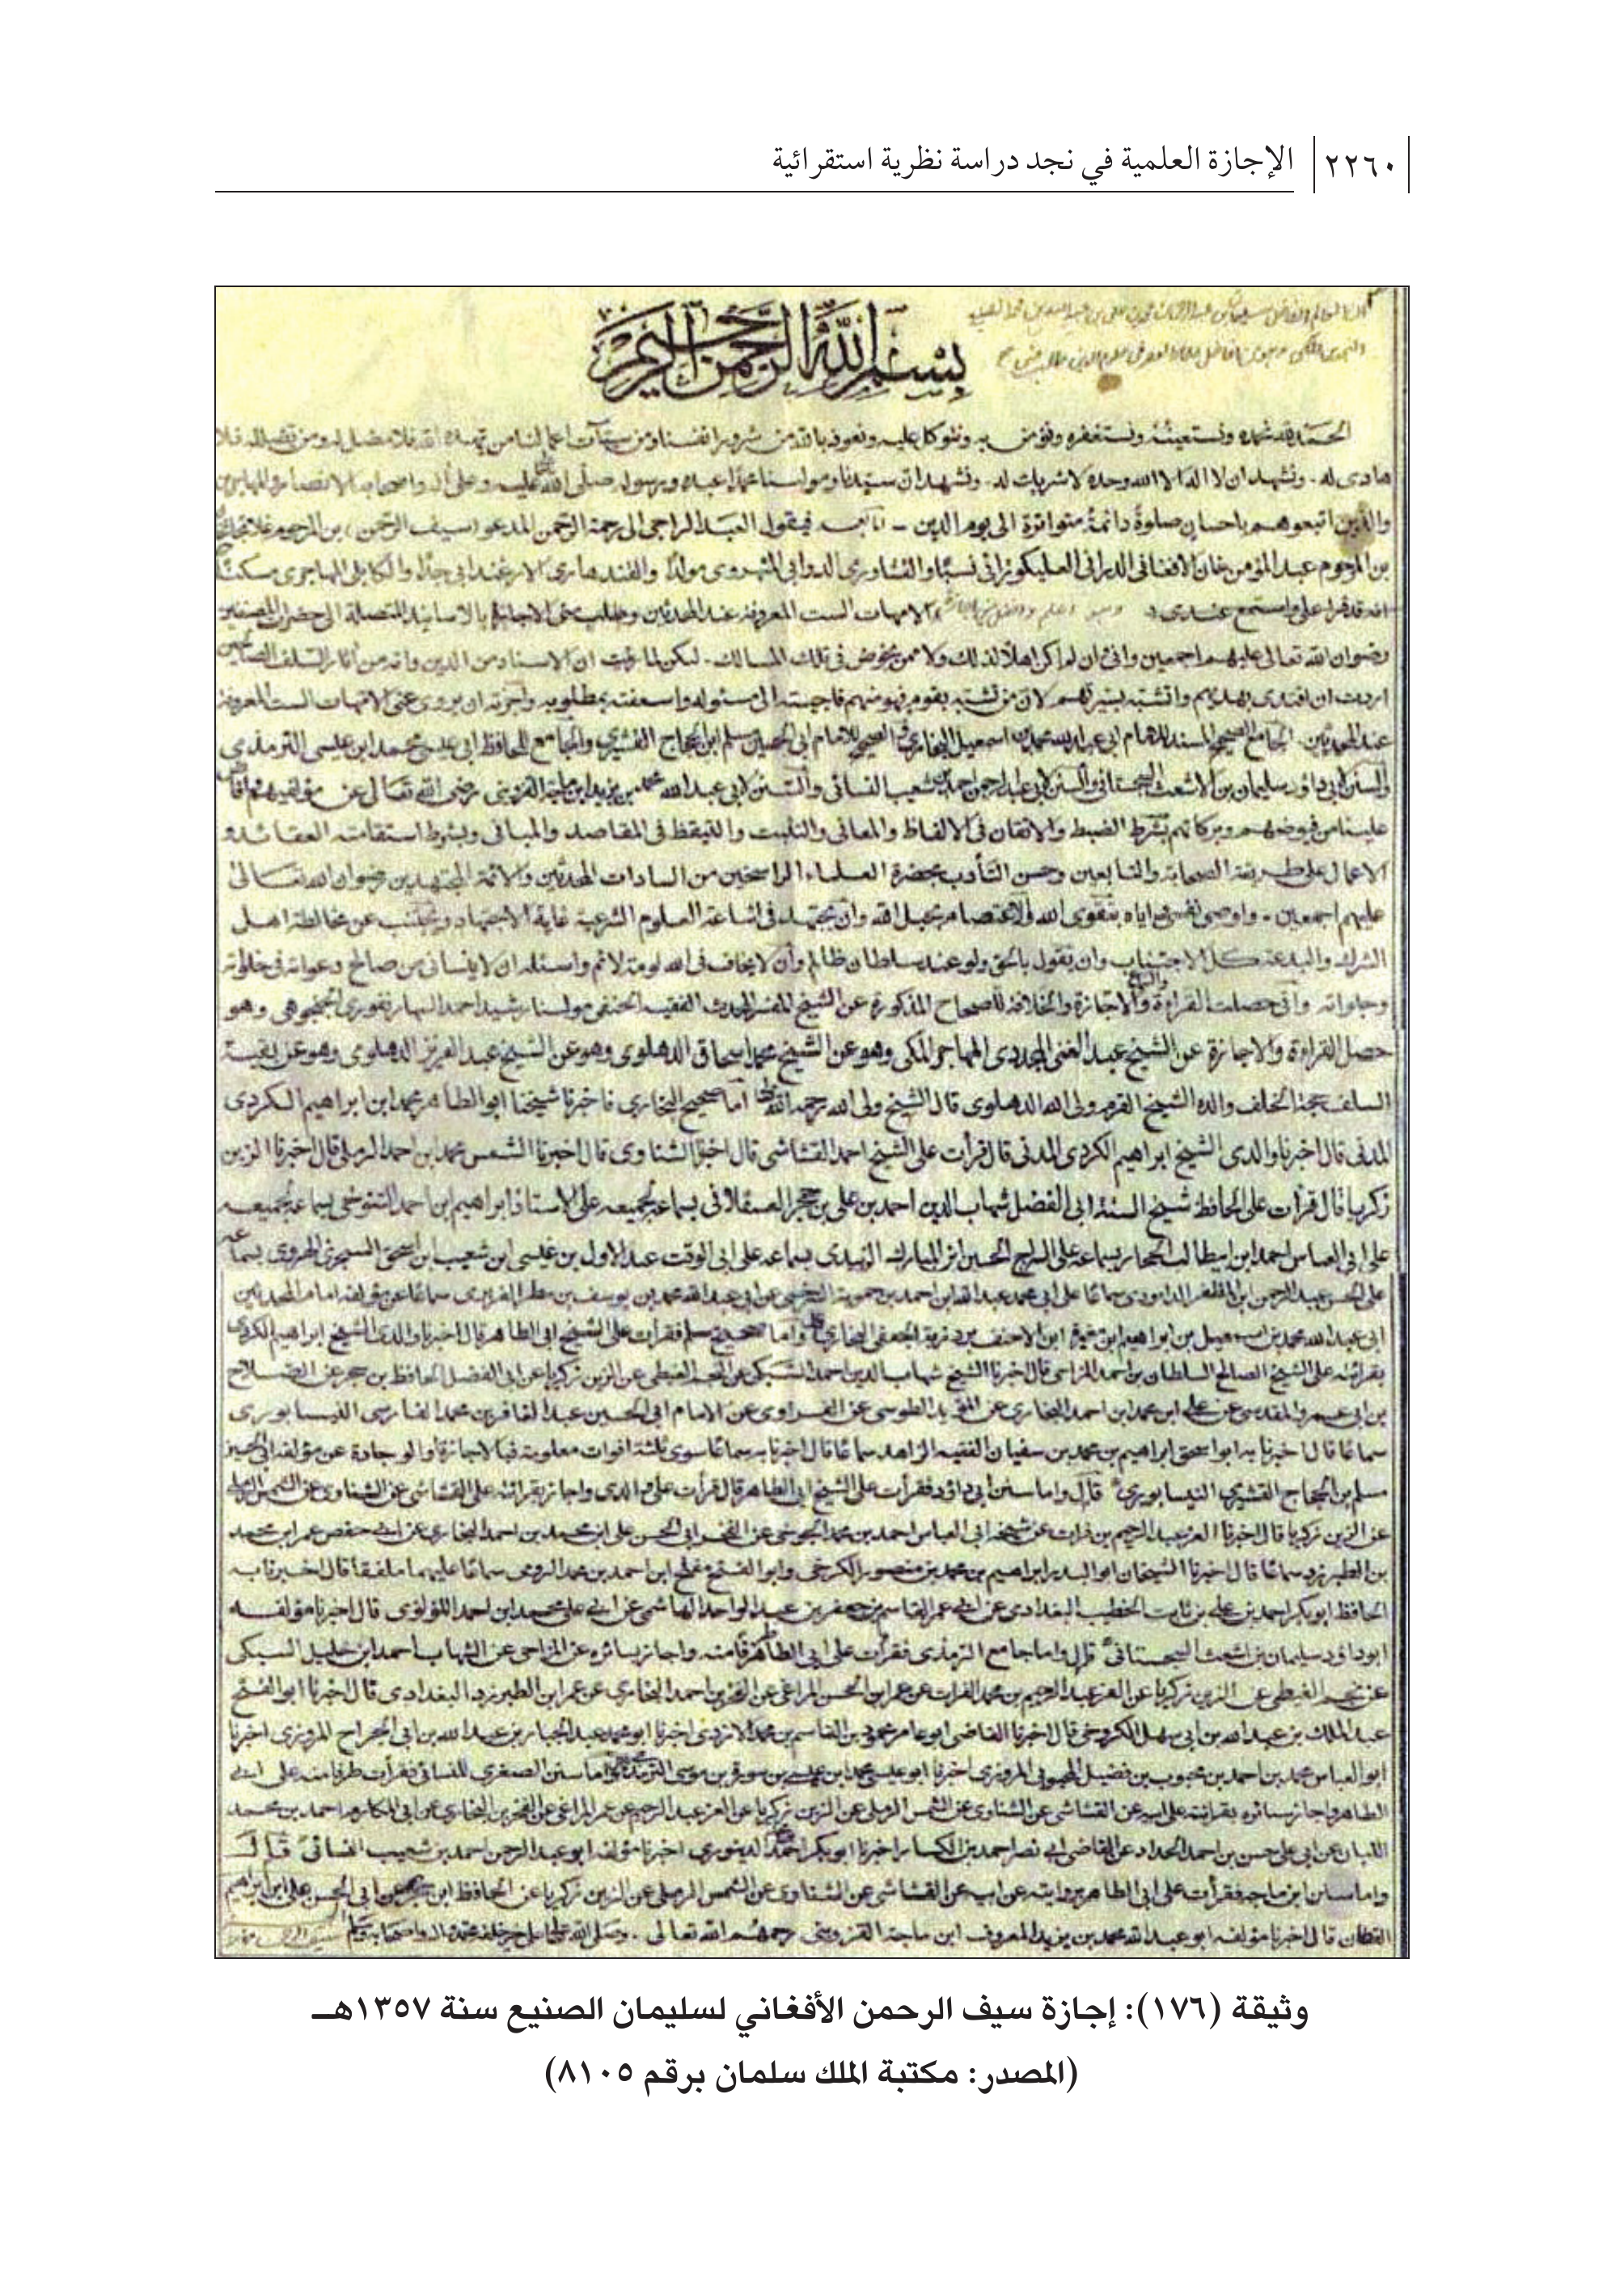 ٢٢٦٠ الإجازة العلمية في نجد دراسة نظرية استقرائية
بسم الله الرحمن الرحيم
الحمد لله نحمده ونستعينه ونستغفره ونؤمن به ونتوكل عليه ونعوذ بالله من شرور انفسنا ومن سيئات اعمالنا من يهده الله فلا مضل له ومن يضلله فلا
هادى له ۔ ونشهد ان لا اله الا الله وحده لا شريك له ۔ ونشهد ان سيدنا ومولىنا محمدا عبده ورسوله صلى الله عليه وعلى اله واصحابه الانصار والمهاجرين
والذين اتبعوهم باحسان صلوة دائمة متواترة الى يوم الدين ۔ فيقول العبد الراجى الى رحمة الرحمن المدعو (سيف الرحمن) بن المرحوم
بن المرحوم عبد المؤمن خان الافغانى الدرانى نسبا مولدا والقندهارى جدا والكابلى المهاجرى مسكنا
انه قد قرأ على واستمع عندى الامهات الست المعروفة عند المحدثين وطلب منى الاجازة بالاسانيد المتصلة الى حضرات المصنفين
رضوان الله تعالى عليهم اجمعين وانى وان لم اكن اهلا لذلك ولا ممن يخوض فى تلك المسالك ۔ لكن لما رأيت ان الاسناد من الدين وانه من آثار السلف الصالحين
اردت ان اقتدى بهديهم واتشبه بسيرتهم لان من تشبه بقوم فهو منهم فاجبته الى مسئوله واسعفته بمطلوبه واجزته ان يروى عنى الامهات الست المعروفة
عند المحدثين الجامع الصحيح المسند للامام ابى عبد الله محمد بن اسمعيل البخارى والصحيح للامام ابى الحسين مسلم ابن الحجاج القشيرى والجامع للحافظ ابى عيسى محمد ابن عيسى الترمذى
والسنن لابى داؤد سليمان بن الاشعث السجستانى والسنن لابى عبد الرحمن احمد بن شعيب النسائى والسنن لابى عبد الله محمد بن يزيد ابن ماجة القزوينى رضى الله تعالى عن مؤلفيهم
علينا من فيوضهم وبركاتهم بشرط الضبط والاتقان فى الالفاظ والمعانى والتثبت والتيقظ فى المقاصد والمبانى وبشرط استقامة العقائد و
الاعمال على طريقة الصحابة والتابعين وحسن التأدب بحضرة العلماء الراسخين من السادات المحدثين والائمة المجتهدين رضوان الله تعالى
عليهم اجمعين ۔ واوصى نفسى واياه بتقوى الله والاعتصام بحبل الله وان يجتهد فى اشاعة العلوم الشرعية غاية الاجتهاد ويجتنب عن مخالطة اهل
الشرك والبدعة كل الاجتناب وان يقول بالحق ولو عند سلطان ظالم وان لا يخاف فى الله لومة لائم واسئله ان لا ينسانى من صالح دعواته فى خلواته
وجلواته وانى حصلت القراءة والاجازة والخلافة للصحاح المذكورة عن الشيخ المفسر المحدث الفقيه الحنفى مولىنا رشيد احمد وهو
حصل القراءة والاجازة عن الشيخ عبد الغنى المجددى المهاجر المكى وهو عن الشيخ محمد اسحاق الدهلوى وهو عن الشيخ عبد العزيز الدهلوى وهو عن بقية
السلف حجة الخلف والده الشيخ القرم ولى الله الدهلوى قال الشيخ ولى الله رحمه الله اما صحيح البخارى فاخبرنا شيخنا ابو الطاهر محمد ابن ابراهيم الكردى
المدنى قال اخبرنا والدى الشيخ ابراهيم الكردى المدنى قال قرأت على الشيخ احمد القشاشى قال اخبرنا الشناوى قال اخبرنا الشمس محمد بن احمد الرملى قال اخبرنا الزين
زكريا قال قرأت على الحافظ شيخ السنة ابى الفضل شهاب الدين احمد بن على بن حجر العسقلانى بسماعه لجميعه على الاستاذ ابراهيم بن احمد التنوخى بسماعه لجميعه
على ابى العباس احمد ابن ابيطالب الحجار بسماعه على السراج الحسين ابن المبارك الزبيدى بسماعه على ابى الوقت عبد الاول بن عيسى ابن شعيب ابن اسحق السجزى الهروى بسماعه
على ابى الحسن عبد الرحمن ابن المظفر الداودى سماعا على ابى محمد عبد الله ابن احمد بن حمويه السرخسى عن ابى عبد الله محمد بن يوسف بن مطر الفربرى سماعا عن مؤلفه امام المحدثين
ابى عبد الله محمد بن اسمعيل بن ابراهيم ابن مغيرة ابن الاحنف بردزبة الجعفى البخارى واما صحيح مسلم فقرأت على الشيخ ابى الطاهر قال اخبرنا والدى الشيخ ابراهيم الكردى
بقرائته على الشيخ الصالح السلطان بن احمد المزاحى قال اخبرنا الشيخ شهاب الدين احمد السبكى عن النجم الغيطى عن الزين زكريا عن ابى الفضل الحافظ بن حجر عن الصلاح
بن ابى عمرو المقدسى عن على ابن محمد ابن احمد البخارى عن المؤيد الطوسى عن الفراوى عن الامام ابى الحسين عبد الغافر بن محمد الفارسى النيسابورى
سماعا قال اخبرنا به ابو اسحق ابراهيم بن محمد بن سفيان الفقيه الزاهد سماعا قال اخبرنا به سماعا سوى ثلثة افوات معلومة فبالاجازة او الوجادة عن مؤلفه ابى الحسين
مسلم بن الحجاج القشيرى النيسابورى قال واما سنن ابى داؤد فقرأت على الشيخ ابى الطاهر قال قرأت على والدى واجاز بقرائته على القشاشى عن الشناوى عن الشمس الرملى
عن الزين زكريا قال اخبرنا العز عبد الرحيم بن فرات عن شيخه ابى العباس احمد بن محمد الجوخى عن الفخر ابى الحسن على ابن محمد بن احمد البخارى عن ابى حفص عمر ابن محمد
بن الطبرزد سماعا قال اخبرنا الشيخان ابو البدر ابراهيم بن محمد بن منصور الكرخى وابو الفتح مفلح ابن احمد بن محمد الرومى سماعا عليهما ملفقا قال اخبرنا به
الحافظ ابو بكر احمد بن على بن ثابت الخطيب البغدادى عن ابى عمر القاسم بن جعفر بن عبد الواحد الهاشمى عن ابى على محمد ابن احمد اللؤلؤى قال اخبرنا مؤلفه
ابو داؤد سليمان بن اشعث السجستانى قال واما جامع الترمذى فقرأت على ابى الطاهر واجاز بسائره عن المزاحى عن الشهاب احمد ابن خليل السبكى
عن نجم الغيطى عن الزين زكريا عن العز عبد الرحيم بن محمد الفرات عن عمر ابن الحسن المراغى عن الفخر بن احمد البخارى عن عمر ابن الطبرزد البغدادى قال اخبرنا ابو الفتح
عبد الملك بن عبد الله بن ابى سهل الكروخى قال اخبرنا القاضى ابو عامر محمود بن القاسم بن محمد الازدى اخبرنا ابو محمد عبد الجبار بن عبد الله بن ابى الجراح المروزى اخبرنا
ابو العباس محمد بن احمد بن محبوب بن فضيل المحبوبى المروزى اخبرنا ابو عيسى محمد ابن عيسى بن سورة بن موسى الترمذى واما سنن الصغرى للنسائى فقرأت طرفا منه على ابى
الطاهر واجاز بسائره بقرائته على ابيه عن القشاشى عن الشناوى عن الشمس الرملى عن الزين زكريا عن العز عبد الرحيم عن عمر المراغى عن الفخر بن البخارى عن ابى المكارم احمد بن محمد
اللبان عن ابى على حسن بن احمد الحداد عن القاضى ابى نصر احمد بن الكسار اخبرنا ابو بكر احمد الدينورى اخبرنا مؤلفه ابو عبد الرحمن احمد بن شعيب النسائى قال
واما سنن ابن ماجه فقرأت على ابى الطاهر بروايته عن ابيه عن القشاشى عن الشناوى عن الشمس الرملى عن الزين زكريا عن الحافظ ابن حجر عن ابى الحسن على ابن ابراهيم
القطان قال اخبرنا مؤلفه ابو عبد الله محمد بن يزيد المعروف ابن ماجة القزوينى رحمهم الله تعالى ۔ وصلى الله على خير خلقه محمد واله واصحابه وسلم
وثيقة (١٧٦): إجازة سيف الرحمن الأفغاني لسليمان الصنيع سنة ١٣٥٧هـ
(المصدر: مكتبة الملك سلمان برقم ٨١٠٥)